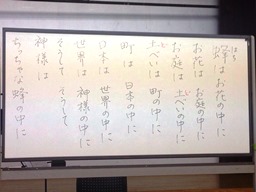 蜂はお花の中に
はち
お花はお庭の中に
お庭は土べいの中に
土べいは町の中に
町は日本の中に
日本は世界の中に
世界は神様の中に
そうして そうして
神様は
ちっちゃな蜂の中に